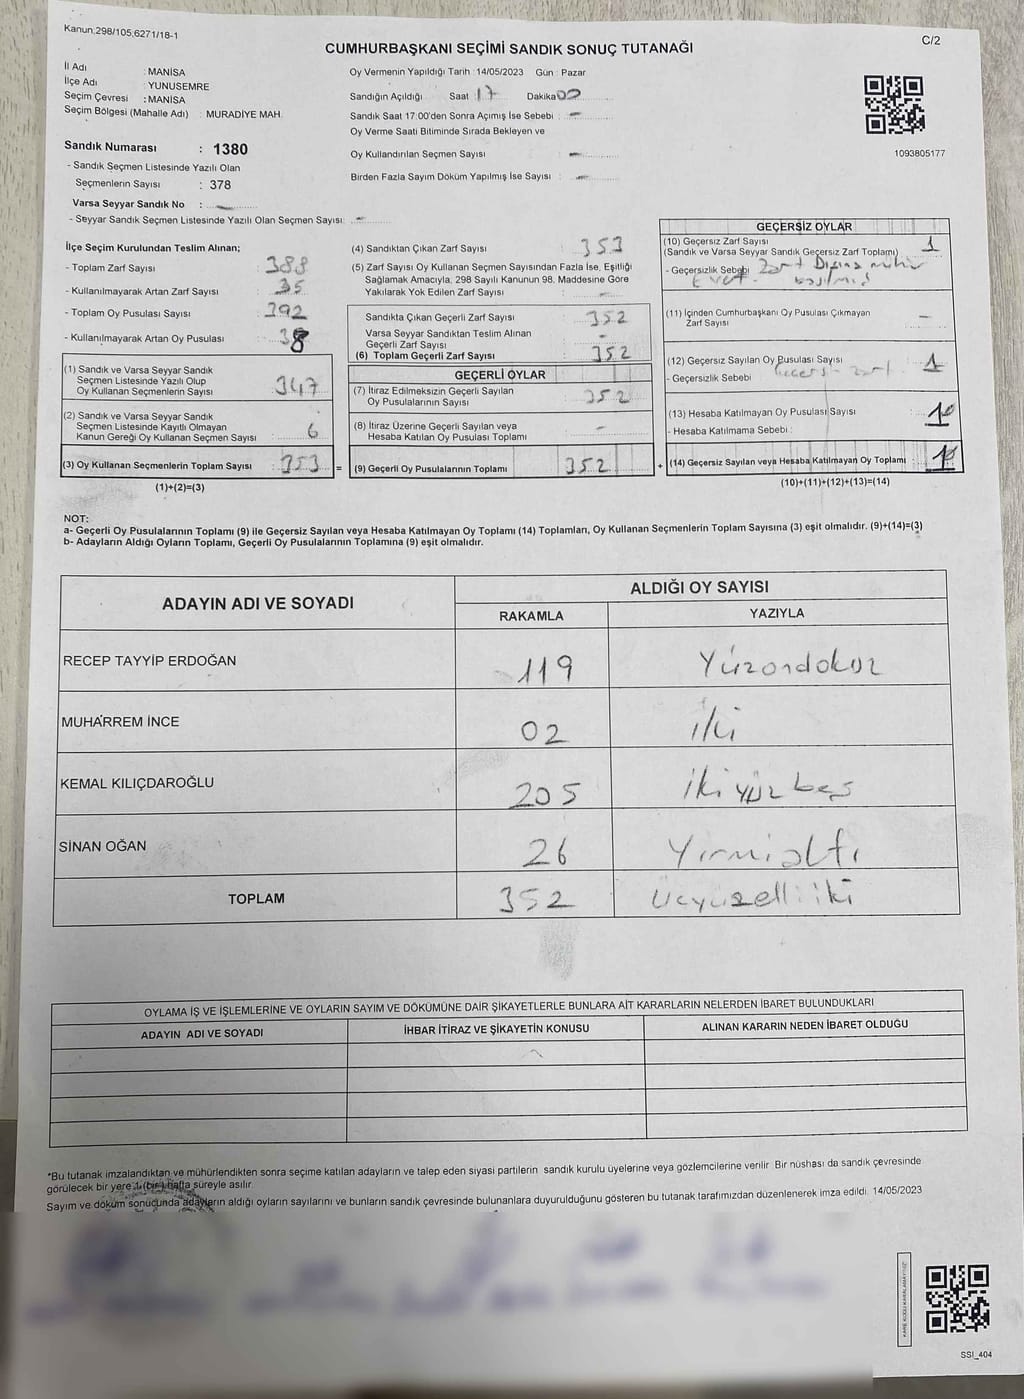 Kanun;298/105;6271/18-1
C/2
CUMHURBAŞKANI SEÇİMİ SANDIK SONUÇ TUTANAĞI
İl Adı : MANİSA
İlçe Adı : YUNUSEMRE
Seçim Çevresi : MANİSA
Seçim Bölgesi (Mahalle Adı) : MURADİYE MAH.
Sandık Numarası : 1380
- Sandık Seçmen Listesinde Yazılı Olan
Seçmenlerin Sayısı : 378
Varsa Seyyar Sandık No : -
- Seyyar Sandık Seçmen Listesinde Yazılı Olan Seçmen Sayısı: -
Oy Vermenin Yapıldığı Tarih : 14/05/2023 Gün : Pazar
Sandığın Açıldığı Saat : 17 Dakika 00
Sandık Saat 17:00'den Sonra Açımış İse Sebebi : -
Oy Verme Saati Bitiminde Sırada Bekleyen ve
Oy Kullandırılan Seçmen Sayısı : -
Birden Fazla Sayım Döküm Yapılmış İse Sayısı : -
1093805177
İlçe Seçim Kurulundan Teslim Alınan;
- Toplam Zarf Sayısı : 388
- Kullanılmayarak Artan Zarf Sayısı : 35
- Toplam Oy Pusulası Sayısı : 392
- Kullanılmayarak Artan Oy Pusulası : 38
(1) Sandık ve Varsa Seyyar Sandık
Seçmen Listesinde Yazılı Olup
Oy Kullanan Seçmenlerin Sayısı : 347
(2) Sandık ve Varsa Seyyar Sandık
Seçmen Listesinde Kayıtlı Olmayan
Kanun Gereği Oy Kullanan Seçmen Sayısı : 6
(3) Oy Kullanan Seçmenlerin Toplam Sayısı : 353 =
(1)+(2)=(3)
(4) Sandıktan Çıkan Zarf Sayısı : 353
(5) Zarf Sayısı Oy Kullanan Seçmen Sayısından Fazla İse, Eşitliği
Sağlamak Amacıyla; 298 Sayılı Kanunun 98. Maddesine Göre
Yakılarak Yok Edilen Zarf Sayısı : -
Sandıkta Çıkan Geçerli Zarf Sayısı : 352
Varsa Seyyar Sandıktan Teslim Alınan
Geçerli Zarf Sayısı : -
(6) Toplam Geçerli Zarf Sayısı : 352
GEÇERLİ OYLAR
(7) İtiraz Edilmeksizin Geçerli Sayılan
Oy Pusulalarının Sayısı : 352
(8) İtiraz Üzerine Geçerli Sayılan veya
Hesaba Katılan Oy Pusulası Toplamı : -
(9) Geçerli Oy Pusulalarının Toplamı : 352 +
GEÇERSİZ OYLAR
(10) Geçersiz Zarf Sayısı : 1
(Sandık ve Varsa Seyyar Sandık Geçersiz Zarf Toplamı)
- Geçersizlik Sebebi : Zarf Dışına mühür
Evet basılmış
(11) İçinden Cumhurbaşkanı Oy Pusulası Çıkmayan
Zarf Sayısı : -
(12) Geçersiz Sayılan Oy Pusulası Sayısı : 1
- Geçersizlik Sebebi : Geçersiz zarf
(13) Hesaba Katılmayan Oy Pusulası Sayısı :
- Hesaba Katılmama Sebebi :
(14) Geçersiz Sayılan veya Hesaba Katılmayan Oy Toplamı :
(10)+(11)+(12)+(13)=(14)
NOT:
a- Geçerli Oy Pusulalarının Toplamı (9) ile Geçersiz Sayılan veya Hesaba Katılmayan Oy Toplamı (14) Toplamları, Oy Kullanan Seçmenlerin Toplam Sayısına (3) eşit olmalıdır. (9)+(14)=(3)
b- Adayların Aldığı Oyların Toplamı, Geçerli Oy Pusulalarının Toplamına (9) eşit olmalıdır.
ADAYIN ADI VE SOYADI
ALDIĞI OY SAYISI
RAKAMLA YAZIYLA
RECEP TAYYİP ERDOĞAN 119 Yüzondokuz
MUHARREM İNCE 02 iki
KEMAL KILIÇDAROĞLU 205 ikiyüzbeş
SİNAN OĞAN 26 Yirmialtı
TOPLAM 352 Üçyüzelliiki
OYLAMA İŞ VE İŞLEMLERİNE VE OYLARIN SAYIM VE DÖKÜMÜNE DAİR ŞİKAYETLERLE BUNLARA AİT KARARLARIN NELERDEN İBARET BULUNDUKLARI
ADAYIN ADI VE SOYADI İHBAR İTİRAZ VE ŞİKAYETİN KONUSU ALINAN KARARIN NEDEN İBARET OLDUĞU
*Bu tutanak imzalandıktan ve mühürlendikten sonra seçime katılan adayların ve talep eden siyasi partilerin sandık kurulu üyelerine veya gözlemcilerine verilir. Bir nüshası da sandık çevresinde
görülecek bir yere 1 (bir) hafta süreyle asılır.
Sayım ve döküm sonucunda adayların aldığı oyların sayılarını ve bunların sandık çevresinde bulunanlara duyurulduğunu gösteren bu tutanak tarafımızdan düzenlenerek imza edildi. 14/05/2023
KARE KODU KARALAMAYINIZ!
SSI_404